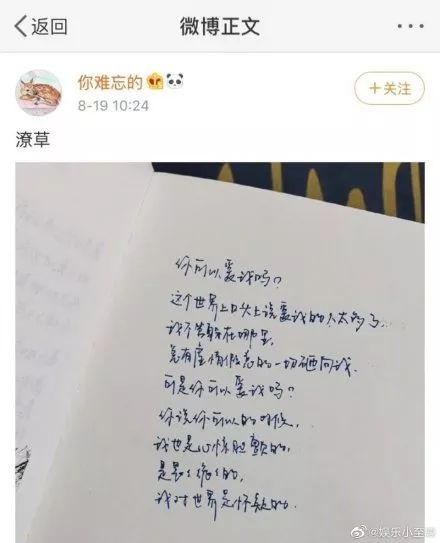 返回
微博正文
你难忘的
8-19 10:24
+关注
潦草
你可以爱我吗?
这个世界上口头上说爱我的人太多了...
我不知躲在哪里,
总有虚情假意的一切砸向我.
可是你可以爱我吗?
你说你可以的时候,
我也是心惊胆颤的,
是畏畏缩缩的,
我对世界是怀疑的.
@娱乐小至